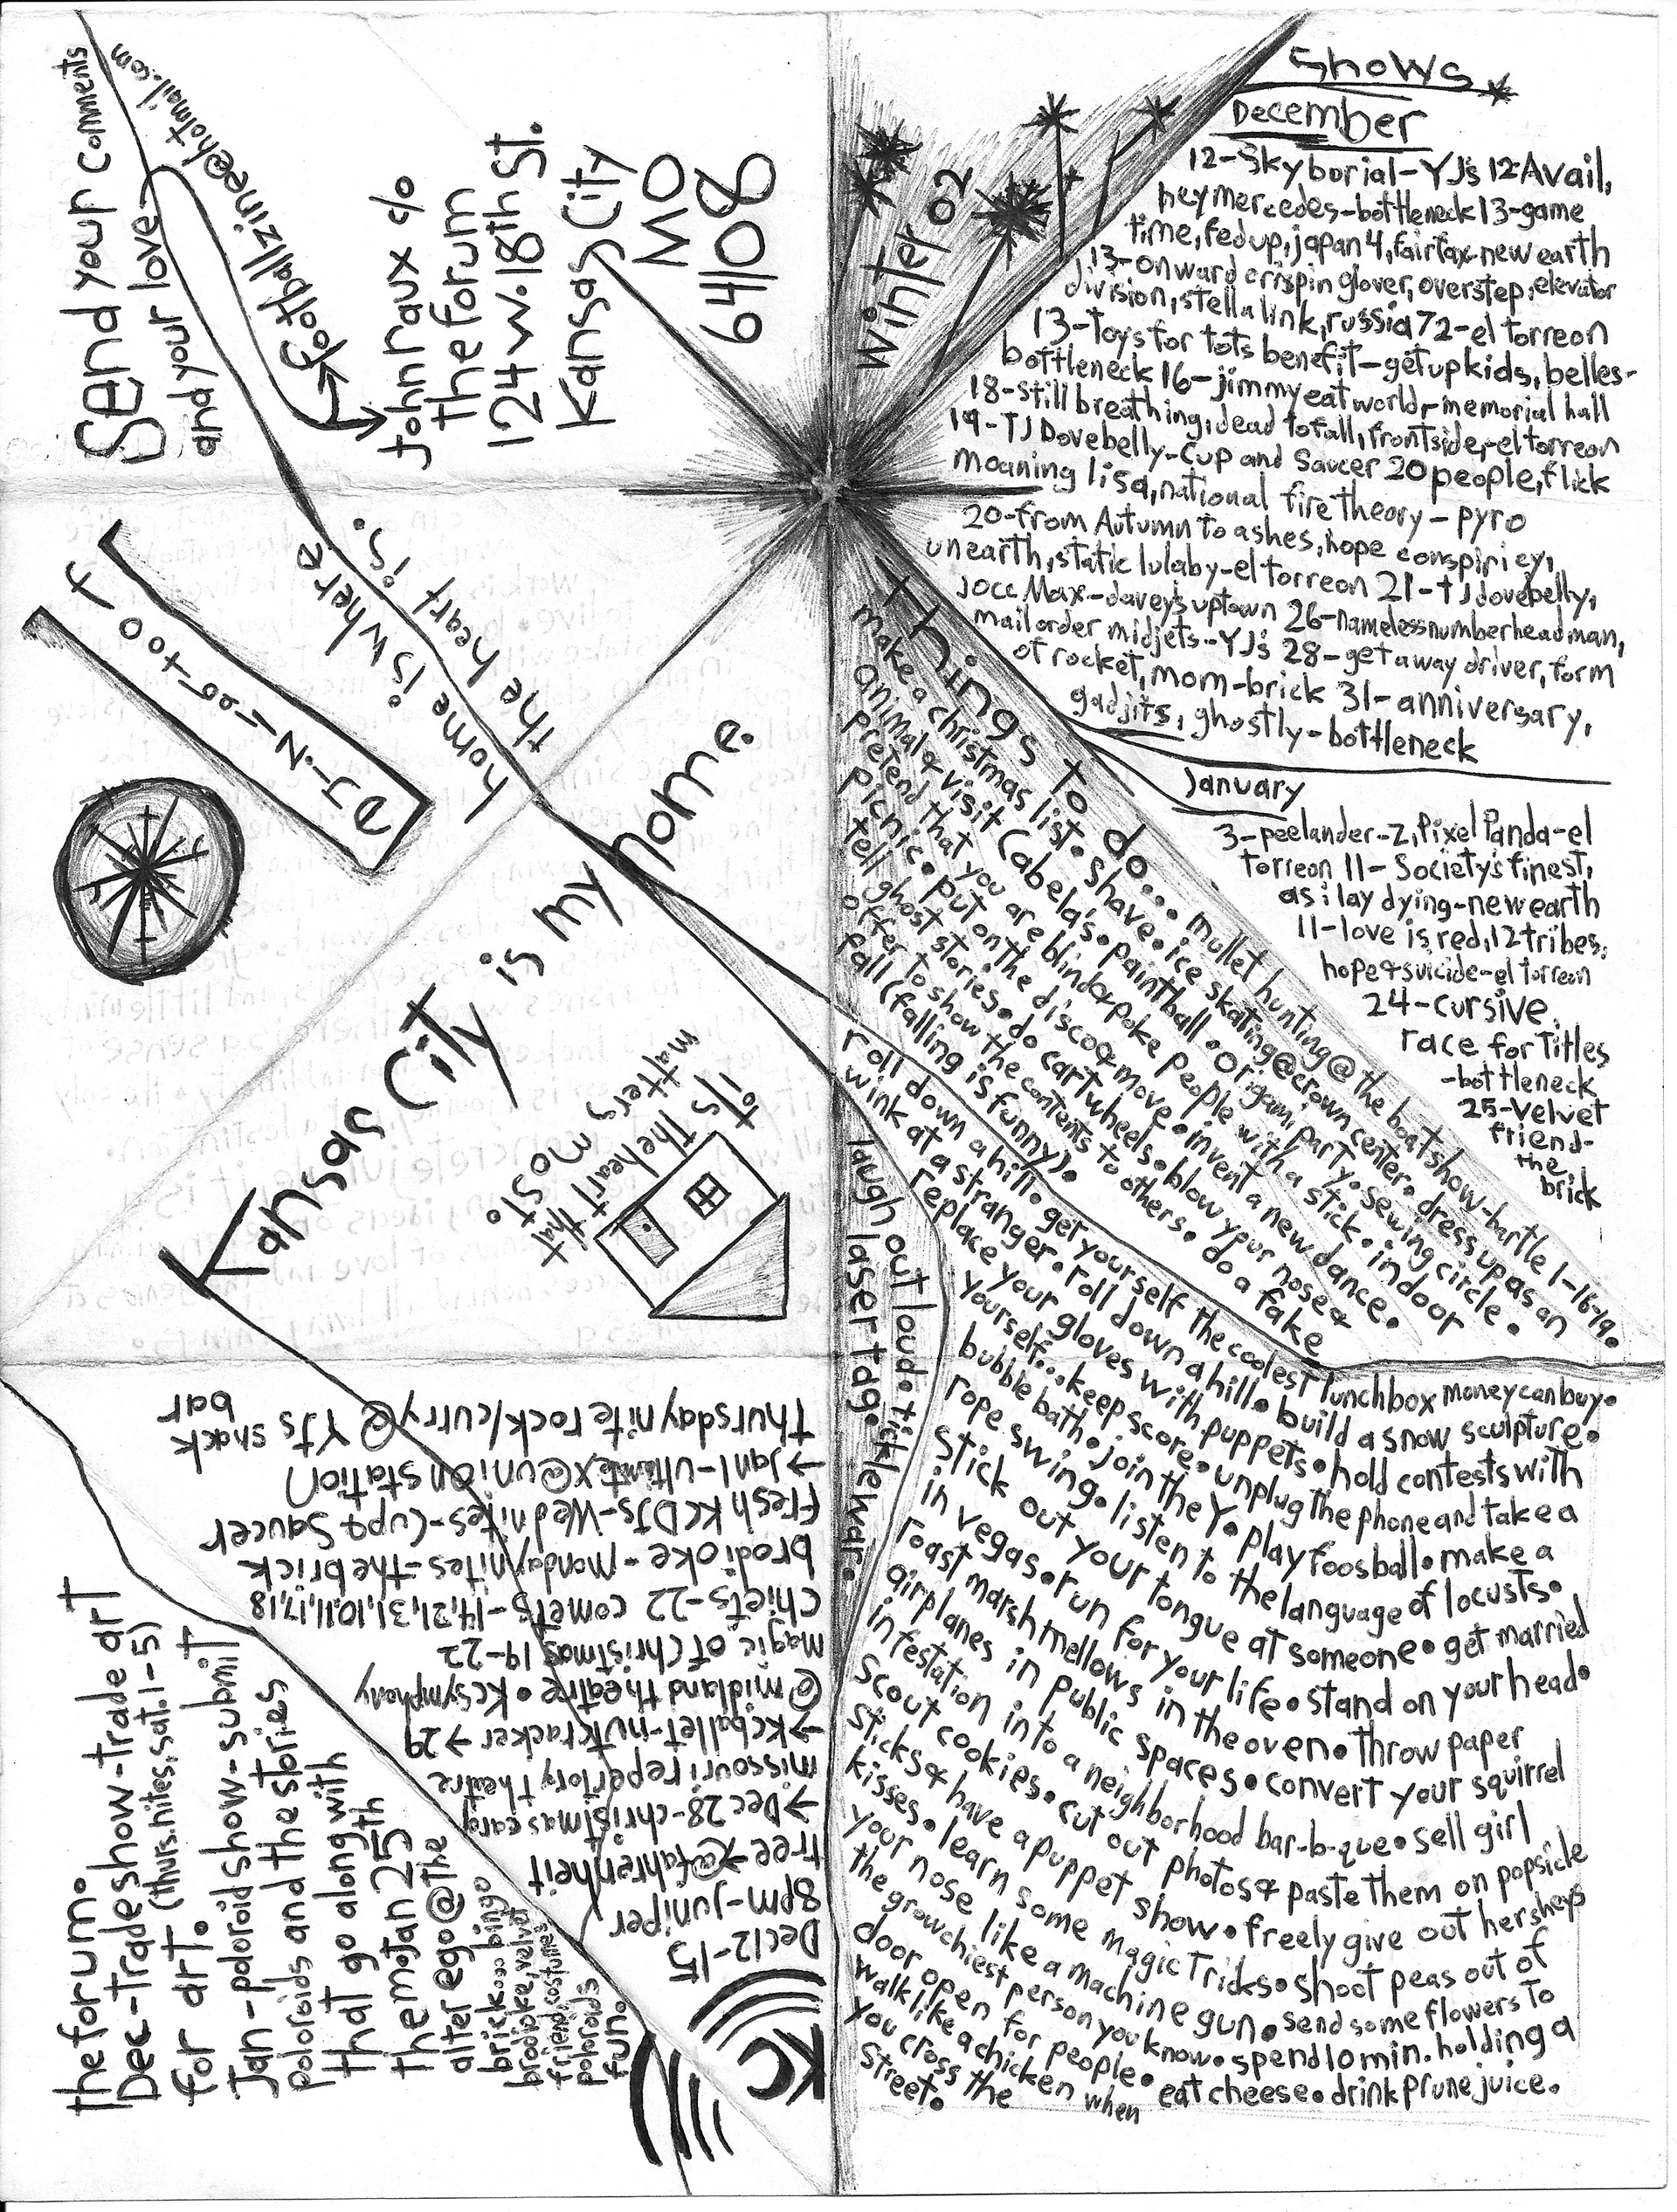 Shows
December
12-Skyborial-YJ's 12-Avail,
hey mercedes-bottleneck 13-game
time, fedup, japan 4, fairfax-new earth
13-onward crispin glover, overstep, elevator
division, stella link, russia 72-el torreon
13-Toys for tots benefit-getupkids, belles-
bottleneck 16-jimmy eat world-memorial hall
18-still breathing, dead to fall, frontside,-el torreon
19-TJ Dovebelly-Cup and Saucer 20 people, flick
moaning lisa, national fire theory-pyro
20-from Autumn to ashes, hope conspiricy,
unearth, static lulaby-el torreon 21-TJ dovebelly,
Jocc Max-davey's uptown 26-nameless number headman,
mail order midjets-YJ's 28-get away driver, form
of rocket, mom-brick 31-anniversary,
gadjits, ghostly-bottleneck
January
3-peelander-z, Pixel Panda-el
torreon 11-Society's finest,
as i lay dying-new earth
11-love is red, 12 tribes,
hope & suicide-el torreon
24-cursive,
race for Titles
-bottleneck
25-Velvet
friend-
the
brick
Winter 02
things to do... mullet hunting @ the boat show-bartle 1-16-19.
make a christmas list. shave. ice skating @ crown center. dress up as an
animal & visit Cabela's. paintball. origami party. sewing circle.
pretend that you are blind & poke people with a stick. indoor
picnic. put on the disco & move. invent a new dance.
tell ghost stories. do cartwheels. blow your nose &
offer to show the contents to others. do a fake
fall (falling is funny).
roll down a hill. get yourself the coolest lunchbox money can buy.
wink at a stranger. roll down a hill. build a snow sculpture.
replace your gloves with puppets. hold contests with
yourself... keep score. unplug the phone and take a
bubble bath. join the Y. play foosball. make a
rope swing. listen to the language of locusts.
stick out your tongue at someone. get married
in vegas. run for your life. stand on your head.
roast marshmellows in the oven. throw paper
airplanes in public spaces. convert your squirrel
infestation into a neighborhood bar-b-que. sell girl
scout cookies. cut out photos & paste them on popsicle
sticks & have a puppet show. freely give out hersheys
kisses. learn some magic tricks. shoot peas out of
your nose like a machine gun. send some flowers to
the growchiest person you know. spend 10 min. holding a
door open for people. eat cheese. drink prune juice.
walk like a chicken when
you cross the
street.
laugh out loud. tickle war.
laser tag.
Send your comments
and your love
footballzine@hotmail.com
John Raux c/o
the forum
124 w. 18th St.
Kansas City
MO
64108
home is where
the heart is.
Kansas City is my home.
its
The heart that
matters most.
Dec 12-15
8pm-juniper
tree → @fahrenheit
→ Dec 28-christmas carol
missouri repertory theatre
→ KC ballet-nutcracker → 29
@midland theatre. KC symphony
magic of christmas 19-22
chiefs-22 comets-14,21,31,10,11,17,18
brodioke-monday nites-the brick
fresh KC DJs-Wed nites-Cup & Saucer
→ Jan 1-ultimate X @ union station
Thursday nite rock/cutry @ YJs snack
bar
KC
the forum.
Dec-tradeshow-trade art
for art. (thurs. nites, sat. 1-5)
Jan-poloroid show-submit
poloroids and the stories
that go along with
them @ jan 25th
alter ego @ the
brick... bingo
brodioke, velvet
friend, costumes
poloroids
fun.